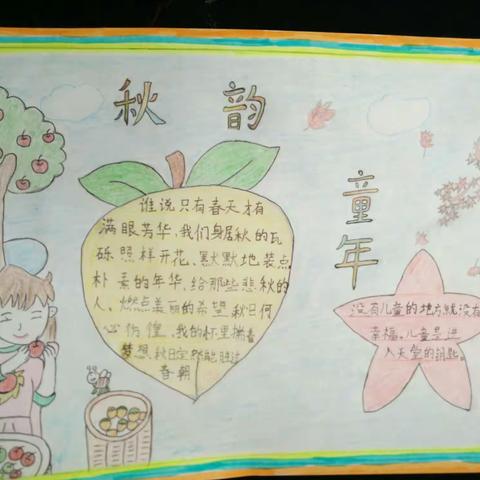 秋韵
谁说只有春天才有
满眼芳华,我们身居秋的瓦
砾照样开花、默默地装点
朴素的年华,给那些悲秋的
人、燃点美丽的希望,秋日何
必彷徨,我的怀里揣着
梦想,秋日定然能胜过
春朝
童年
没有儿童的地方就没有
幸福、儿童是进
入天堂的钥匙。